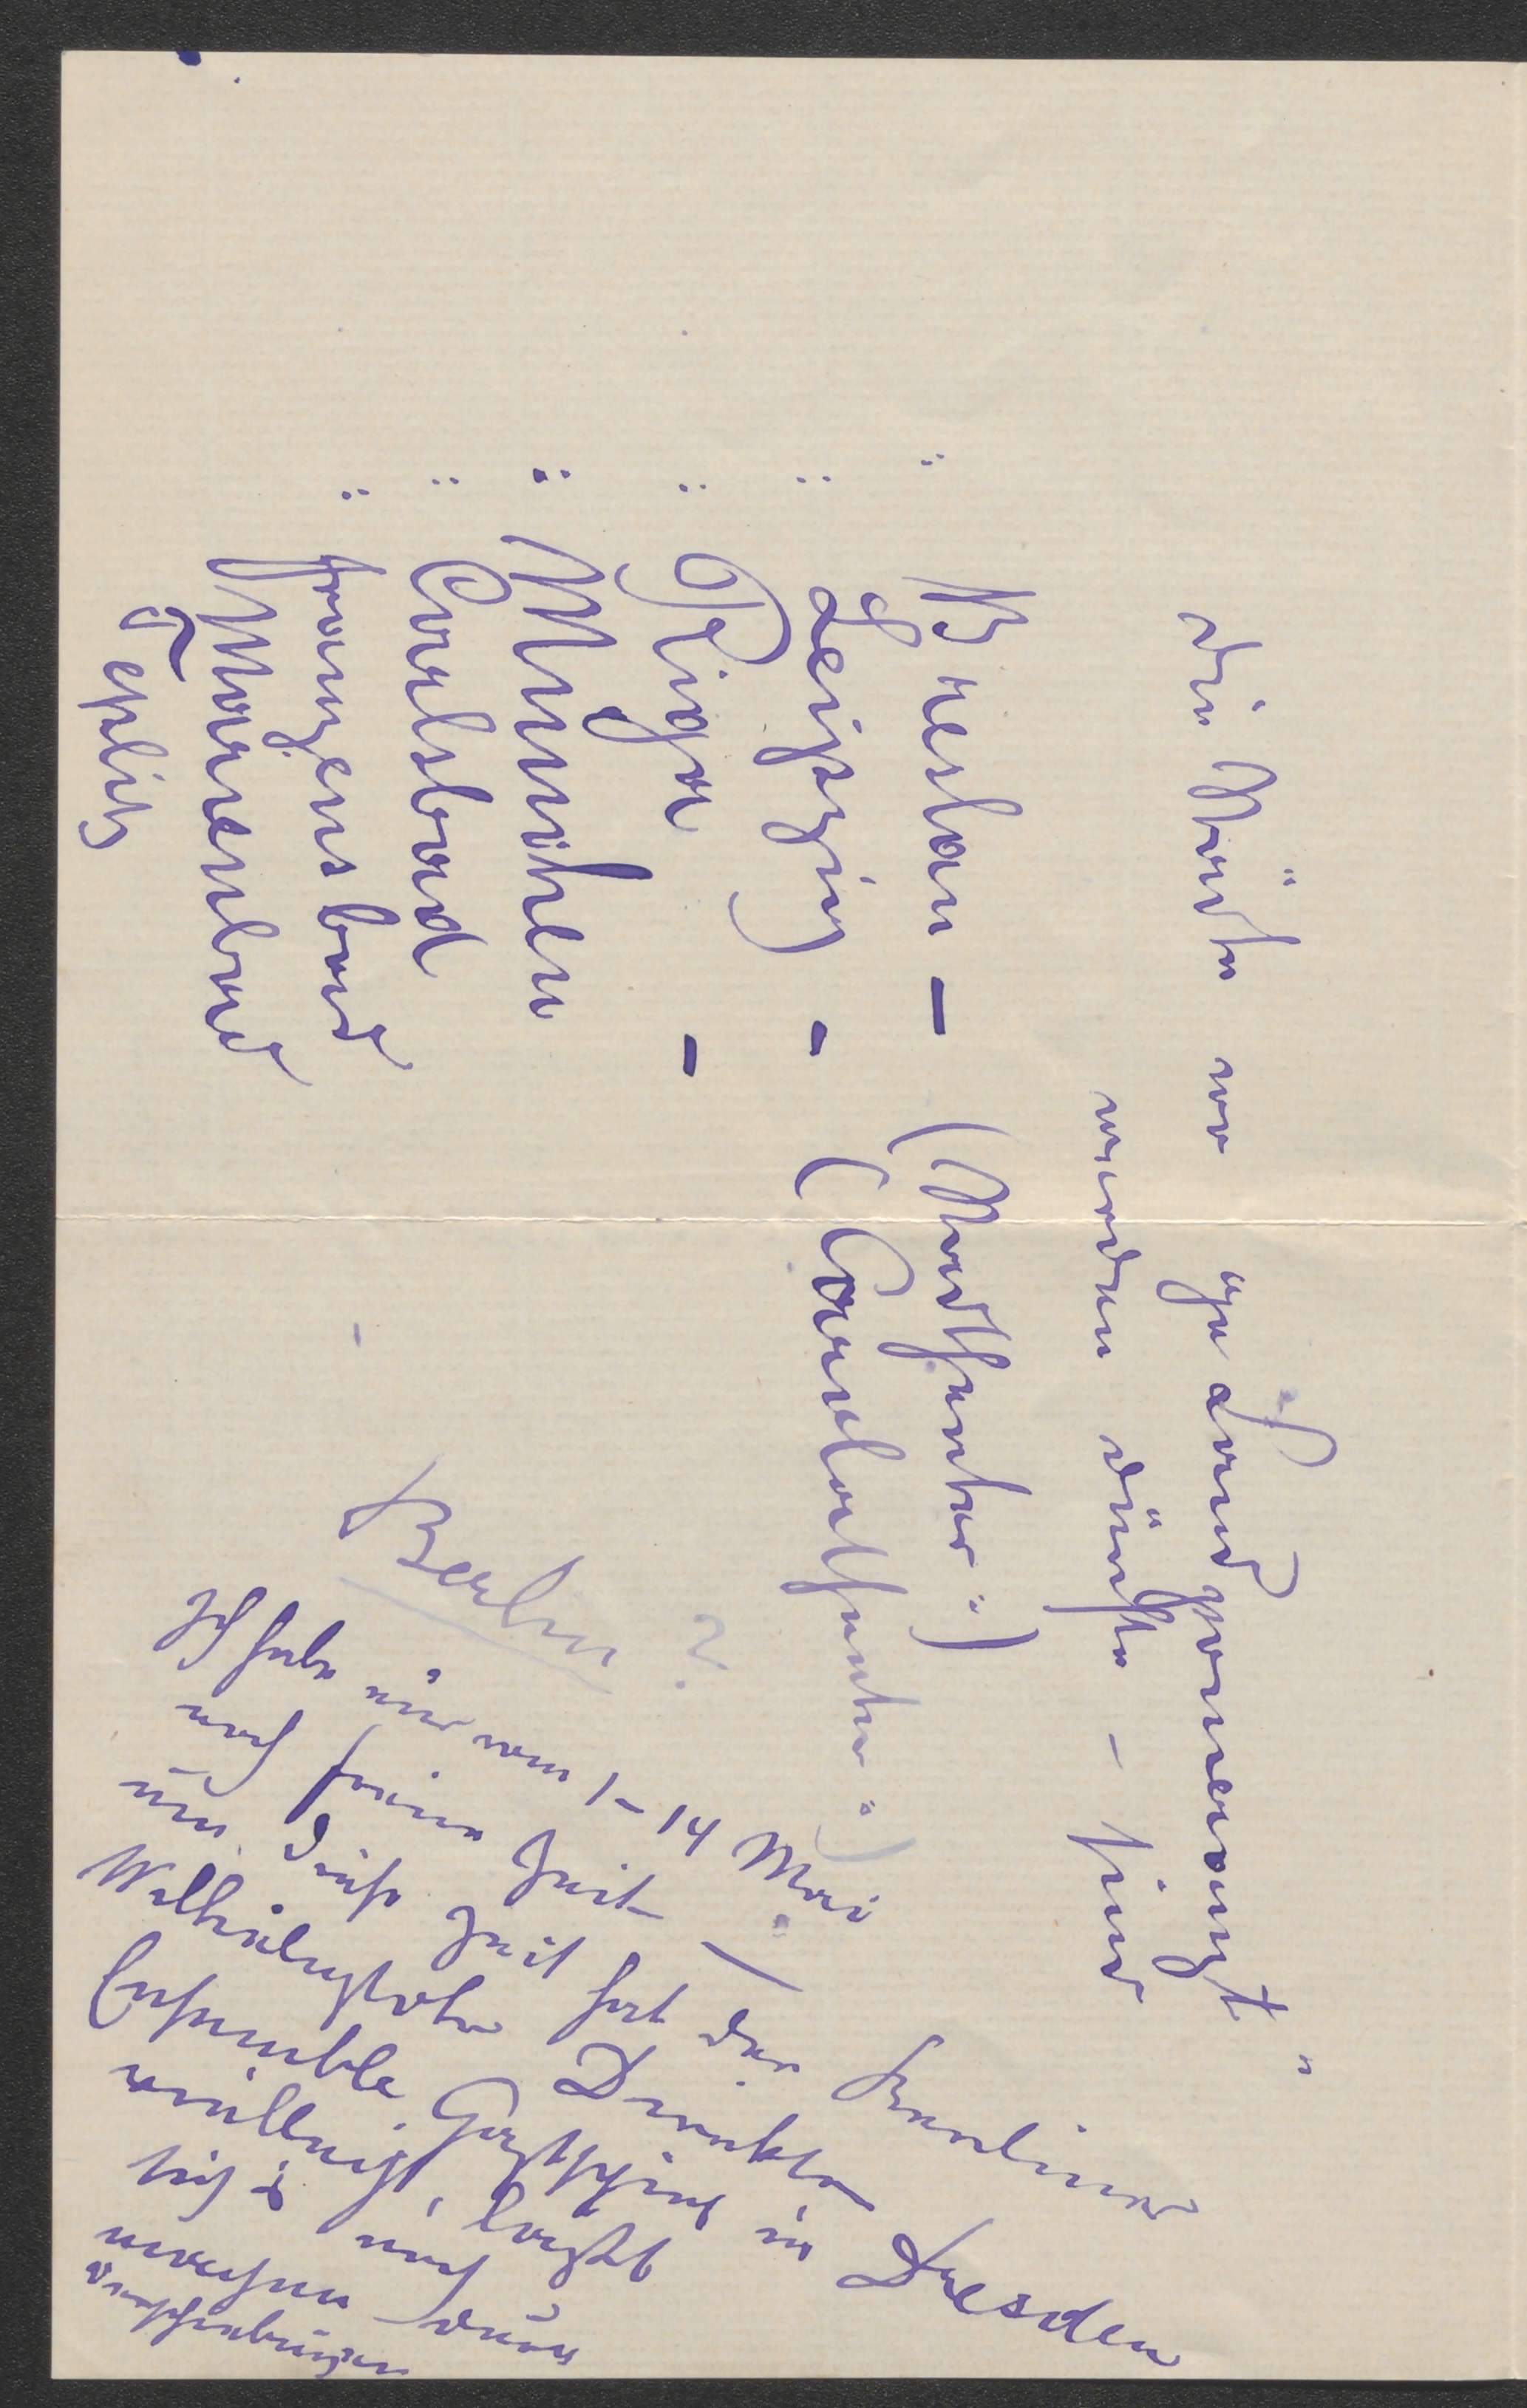 die Städte wo "ich danse pour vous"
werden dürfte – sind
Breslau – (Stadttheater)
Leipzig – (Carolatheater)
Riga –
München
Carlsbad
Franzensbad
Marienbad
Teplitz
Berlin ?
Ich habe nur vom 1–14 Mai
noch freie Zeit –
um diese Zeit hat der Berliner
Direktor
Ensemble Gastspiel in Dresden
vielleicht, läßt
sich noch
machen